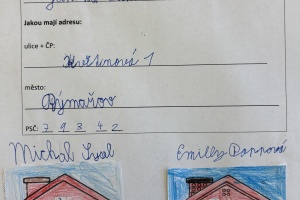 Jakou mají adresu:
ulice + ČP:
Květinová 1
město:
Rýmařov
PSČ: 7 9 3 4 2
Michal
Emilly Pappová